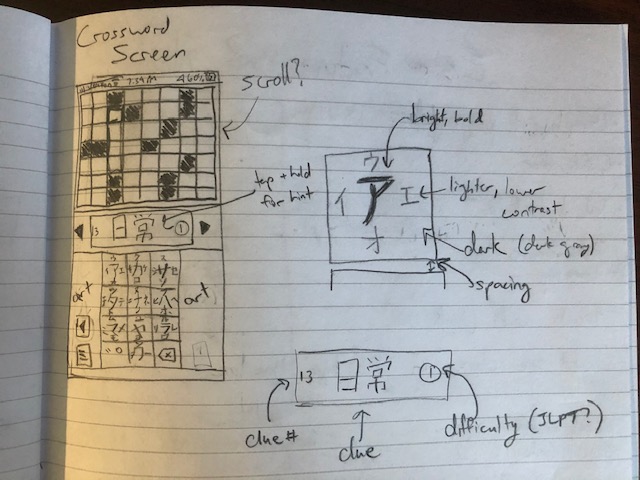 Crossword
Screen
7:59 AM
scroll?
tap + hold
for hint
13 日常 1
art
art
bright, bold
ウ
イ ア エ
オ
lighter, lower
contrast
dark (dark gray)
spacing
13 日常 1
clue #
clue
difficulty (JLPT?)